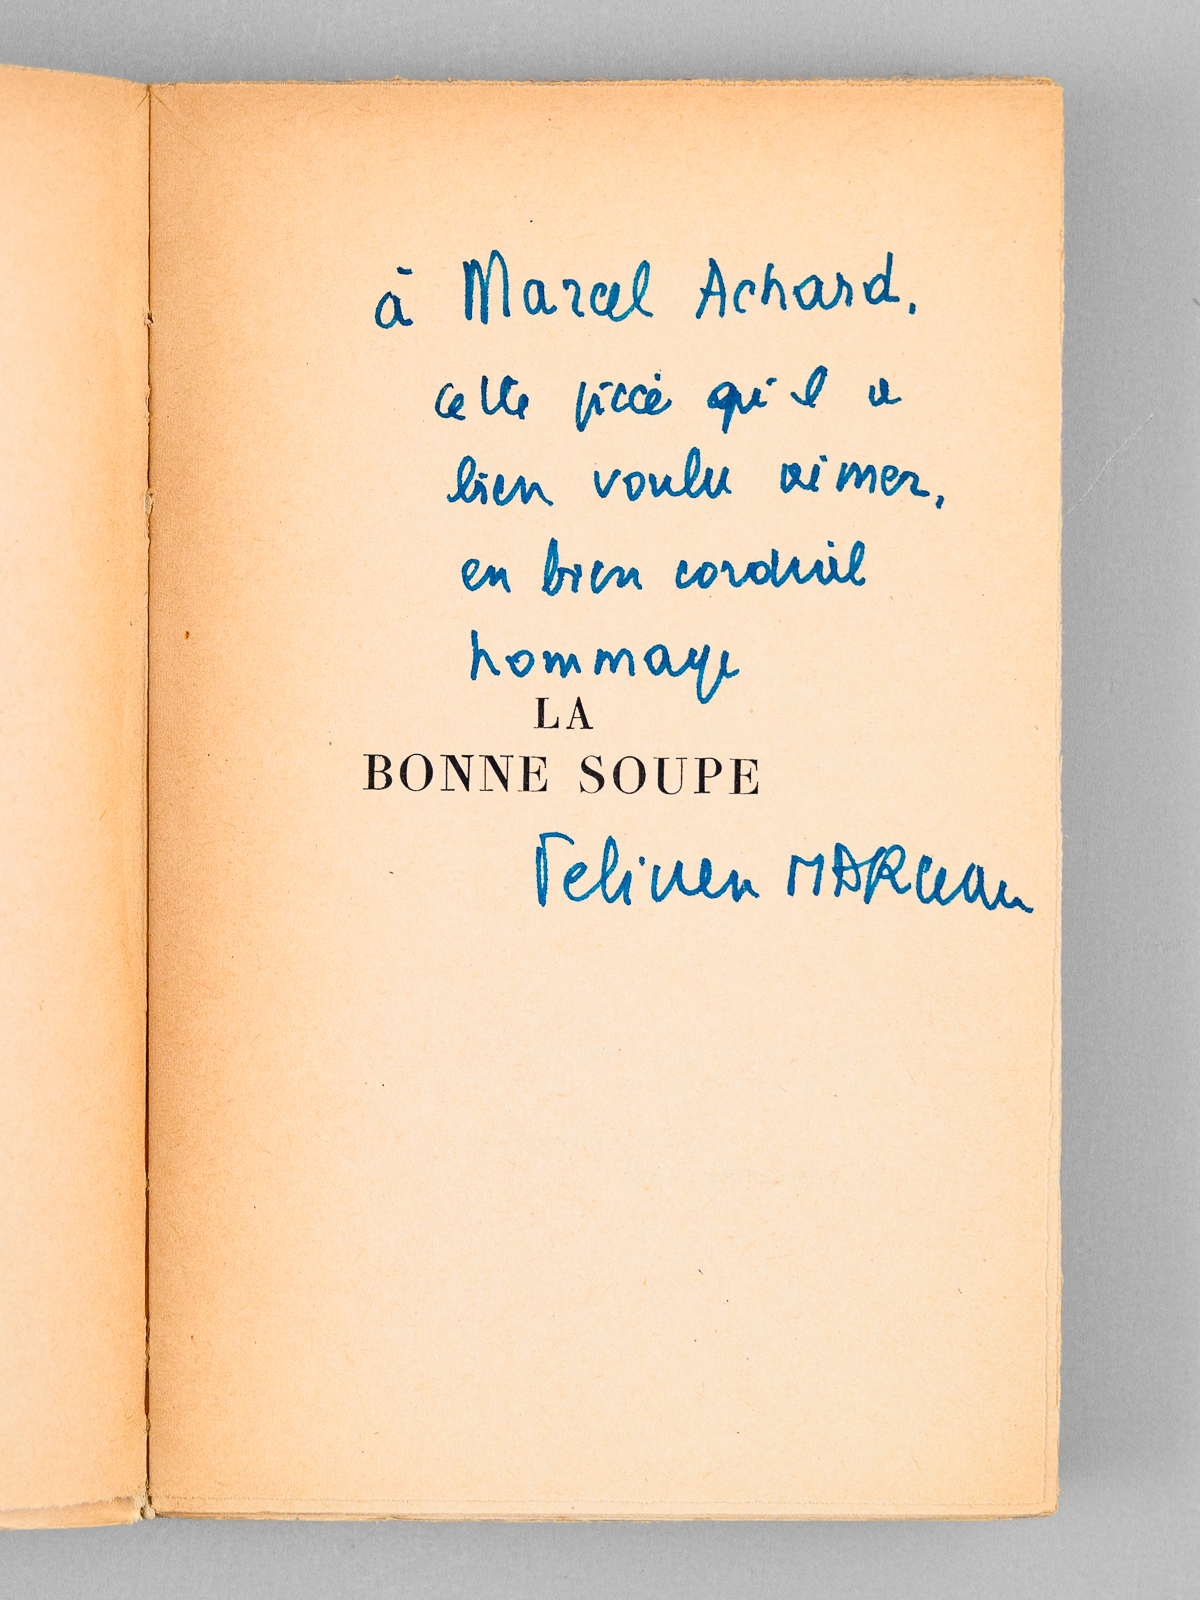 à Marcel Achard,
cette pièce qu'il a
bien voulu aimer,
en bien cordial
hommage
LA
BONNE SOUPE
Félicien MARceau